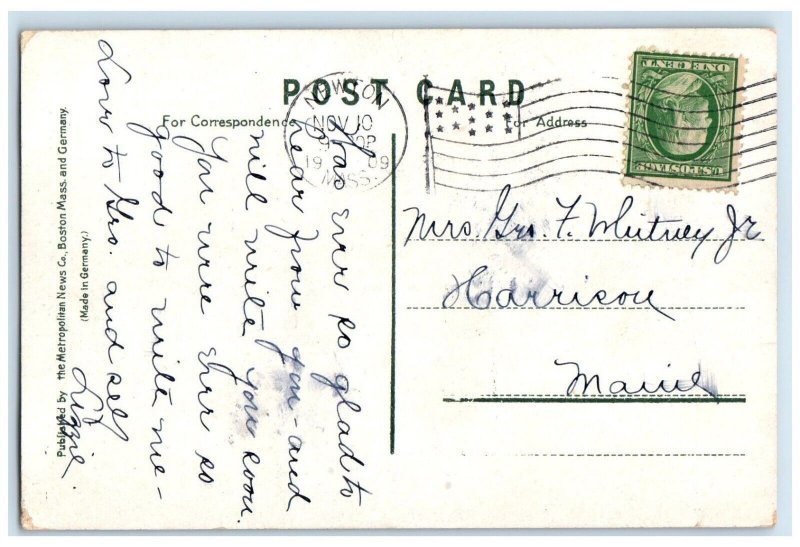 POST CARD
For Correspondence
For Address
NEWTON
NOV 10
19 09
MASS.
U.S. POSTAGE
ONE CENT
Was ever so glad to
hear from you - and
will write you soon.
You were ever so
good to write me -
Love to Geo. and self
Lizzie.
Mrs. Geo. F. Whitney Jr
Harrison
Maine
Published by the Metropolitan News Co., Boston Mass. and Germany.
(Made in Germany.)